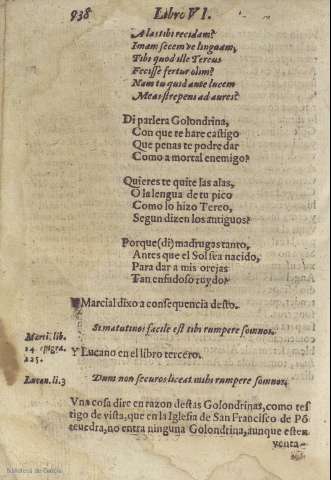 938 Libro VI.
Alas tibi recidam?
Imam secem ve linguam,
Tibi quod ille Tereus
Fecisse fertur olim?
Nam tu quid ante lucem
Meas strepens ad aures?
Di parlera Golondrina,
Con que te hare castigo
Que penas te podre dar
Como a mortal enemigo?
Quieres te quite las alas,
O la lengua de tu pico
Como lo hizo Tereo,
Segun dizen los antiguos?
Porque (di) madrugas tanto,
Antes que el Sol sea nacido,
Para dar a mis orejas
Tan enfadoso ruydo?
Marcial dixo a consequencia desto.
Si matutinos facile est tibi rumpere somnos.
Marti. lib.
14 epigra.
225.
Y Lucano en el libro tercero.
Lucan. li.3
Dum non securos liceat mihi rumpere somnos.
Vna cosa dire en razon destas Golondrinas, como tes
tigo de vista, que en la Iglesia de San Francisco de Pō
teuedra, no entra ninguna Golondrina, aunque esten
venta-
Biblioteca de Galicia